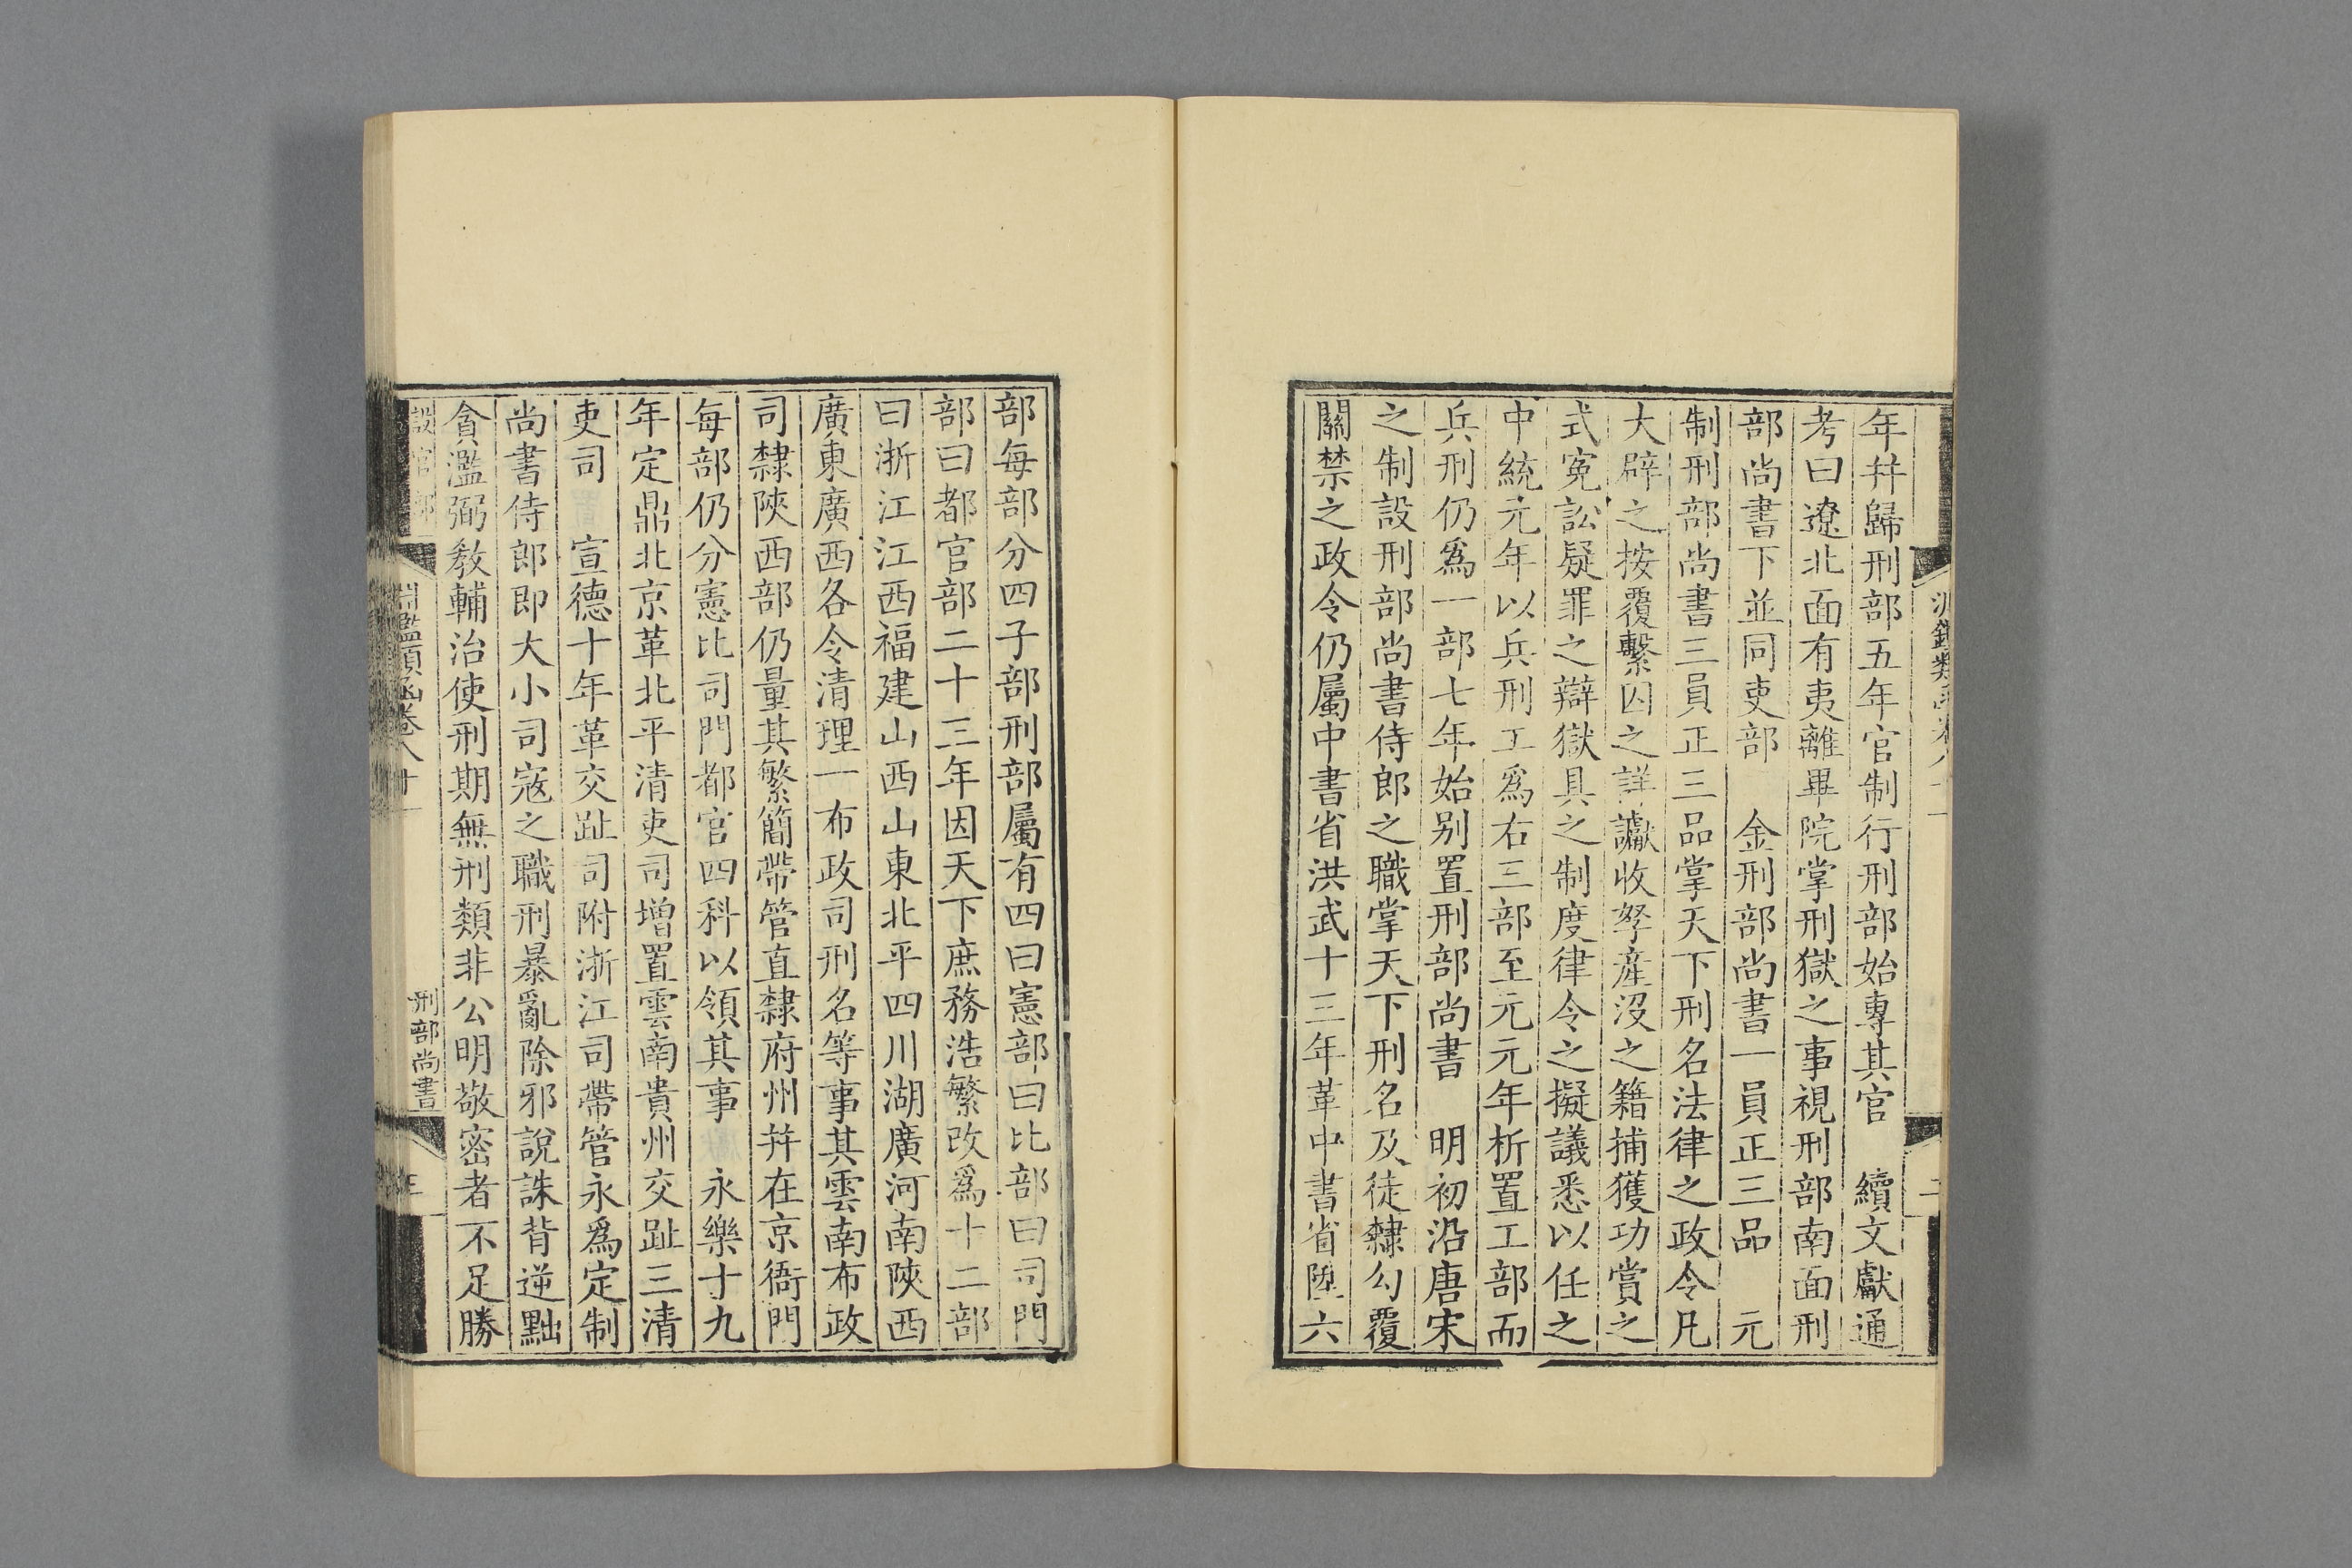 年幷歸刑部五年官制行刑部始專其官　續文獻通
考曰遼北面有夷離畢院掌刑獄之事視刑部南面刑
部尚書下並同吏部　金刑部尚書一員正三品　元
制刑部尚書三員正三品掌天下刑名法律之政令凡
大辟之按覆繫囚之詳讞收孥產沒之籍捕獲功賞之
式冤訟疑罪之辯獄具之制度律令之擬議悉以任之
中統元年以兵刑工爲右三部至元元年析置工部而
兵刑仍爲一部七年始别置刑部尚書　明初沿唐宋
之制設刑部尚書侍郎之職掌天下刑名及徒隸勾覆
關禁之政令仍屬中書省洪武十三年革中書省陞六
部每部分四子部刑部屬有四曰憲部曰比部曰司門
部曰都官部二十三年因天下庶務浩繁改爲十二部
曰浙江江西福建山西山東北平四川湖廣河南陝西
廣東廣西各令清理一布政司刑名等事其雲南布政
司隸陝西部仍量其繁簡帶管直隸府州幷在京衙門
每部仍分憲比司門都官四科以領其事　永樂十九
年定鼎北京革北平清吏司增置雲南貴州交趾三清
吏司　宣德十年革交趾司附浙江司帶管永爲定制
尚書侍郎即大小司寇之職刑暴亂除邪說誅背逆黜
貪濫弼敎輔治使刑期無刑類非公明敬密者不足勝
設官部
淵鑑類函卷八十
刑部尚書
三